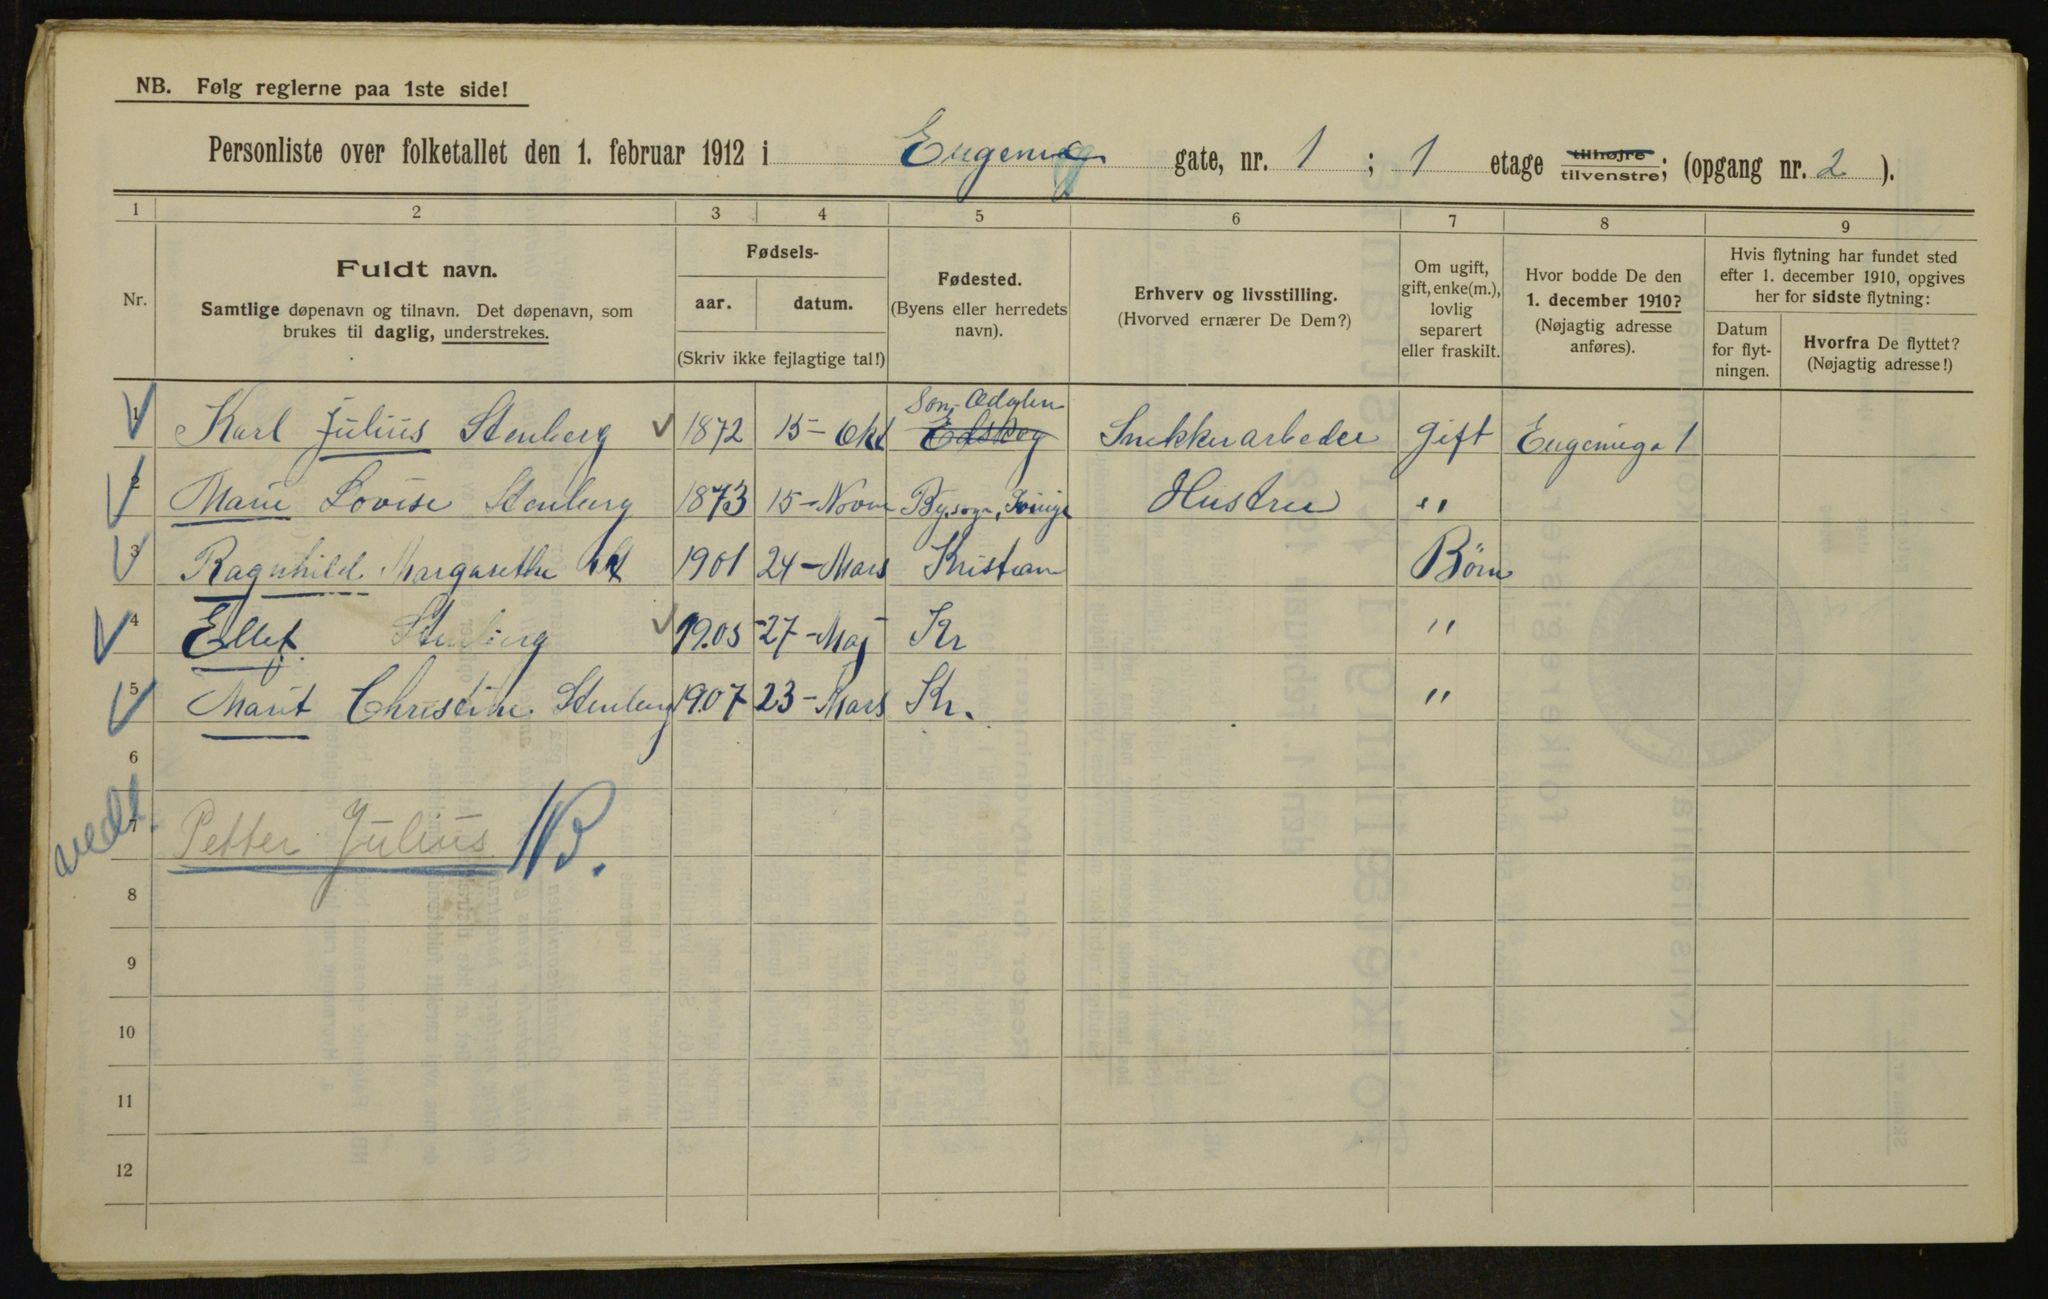 NB. Følg reglerne paa 1ste side!
Personliste over folketallet den 1. februar 1912 i Eugenia gate, nr. 1 ; 1 etage tilhøjre tilvenstre; (opgang nr. 2 ).
1 2 3 4 5 6 7 8 9
Nr.
Fuldt navn.
Samtlige døpenavn og tilnavn. Det døpenavn, som
brukes til daglig, understrekes.
Fødsels-
aar. datum.
(Skriv ikke fejlagtige tal!)
Fødested.
(Byens eller herredets
navn).
Erhverv og livsstilling.
(Hvorved ernærer De Dem?)
Om ugift,
gift, enke(m.),
lovlig
separert
eller fraskilt.
Hvor bodde De den
1. december 1910?
(Nøjagtig adresse
anføres).
Hvis flytning har fundet sted
efter 1. december 1910, opgives
her for sidste flytning:
Datum
for flyt-
ningen.
Hvorfra De flyttet?
(Nøjagtig adresse!)
1 Karl Julius Stenberg 1872 15 - Okt Edskog Snekkerarbeder gift Eugeniega 1
2 Marie Lovise Stenberg 1873 15 - Novm Bysogn, Hustru "
3 Ragnhild Margarethe 1901 24 - Mars Kristian Børn
4 Ellef Stenberg 1905 27 - Maj Kr "
5 Marit Christine Stenberg 1907 23 - Mars Kr. "
6
7 Petter Julius NB.
8
9
10
11
12